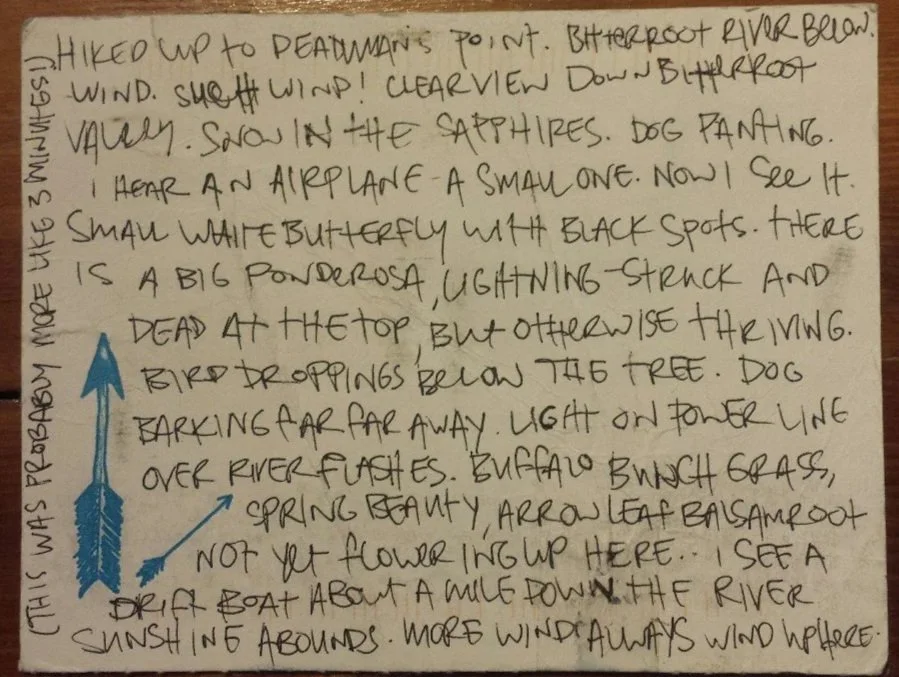 HIKED UP TO DEADMAN'S POINT. BITTERROOT RIVER BELOW.
WIND. SUCH WIND! CLEAR VIEW DOWN BITTERROOT
VALLEY. SNOW IN THE SAPPHIRES. DOG PANTING.
I HEAR AN AIRPLANE - A SMALL ONE. NOW I SEE IT.
SMALL WHITE BUTTERFLY WITH BLACK SPOTS. THERE
IS A BIG PONDEROSA, LIGHTNING-STRUCK AND
DEAD AT THE TOP, BUT OTHERWISE THRIVING.
BIRD DROPPINGS BELOW THE TREE. DOG
BARKING FAR FAR AWAY. LIGHT ON POWER LINE
OVER RIVER FLASHES. BUFFALO BUNCH GRASS,
SPRING BEAUTY, ARROW LEAF BALSAMROOT
NOT YET FLOWERING UP HERE.. I SEE A
DRIFT BOAT ABOUT A MILE DOWN THE RIVER
SUNSHINE ABOUNDS. MORE WIND! ALWAYS WIND UP HERE.
(THIS WAS PROBABLY MORE LIKE 3 MINUTES!)